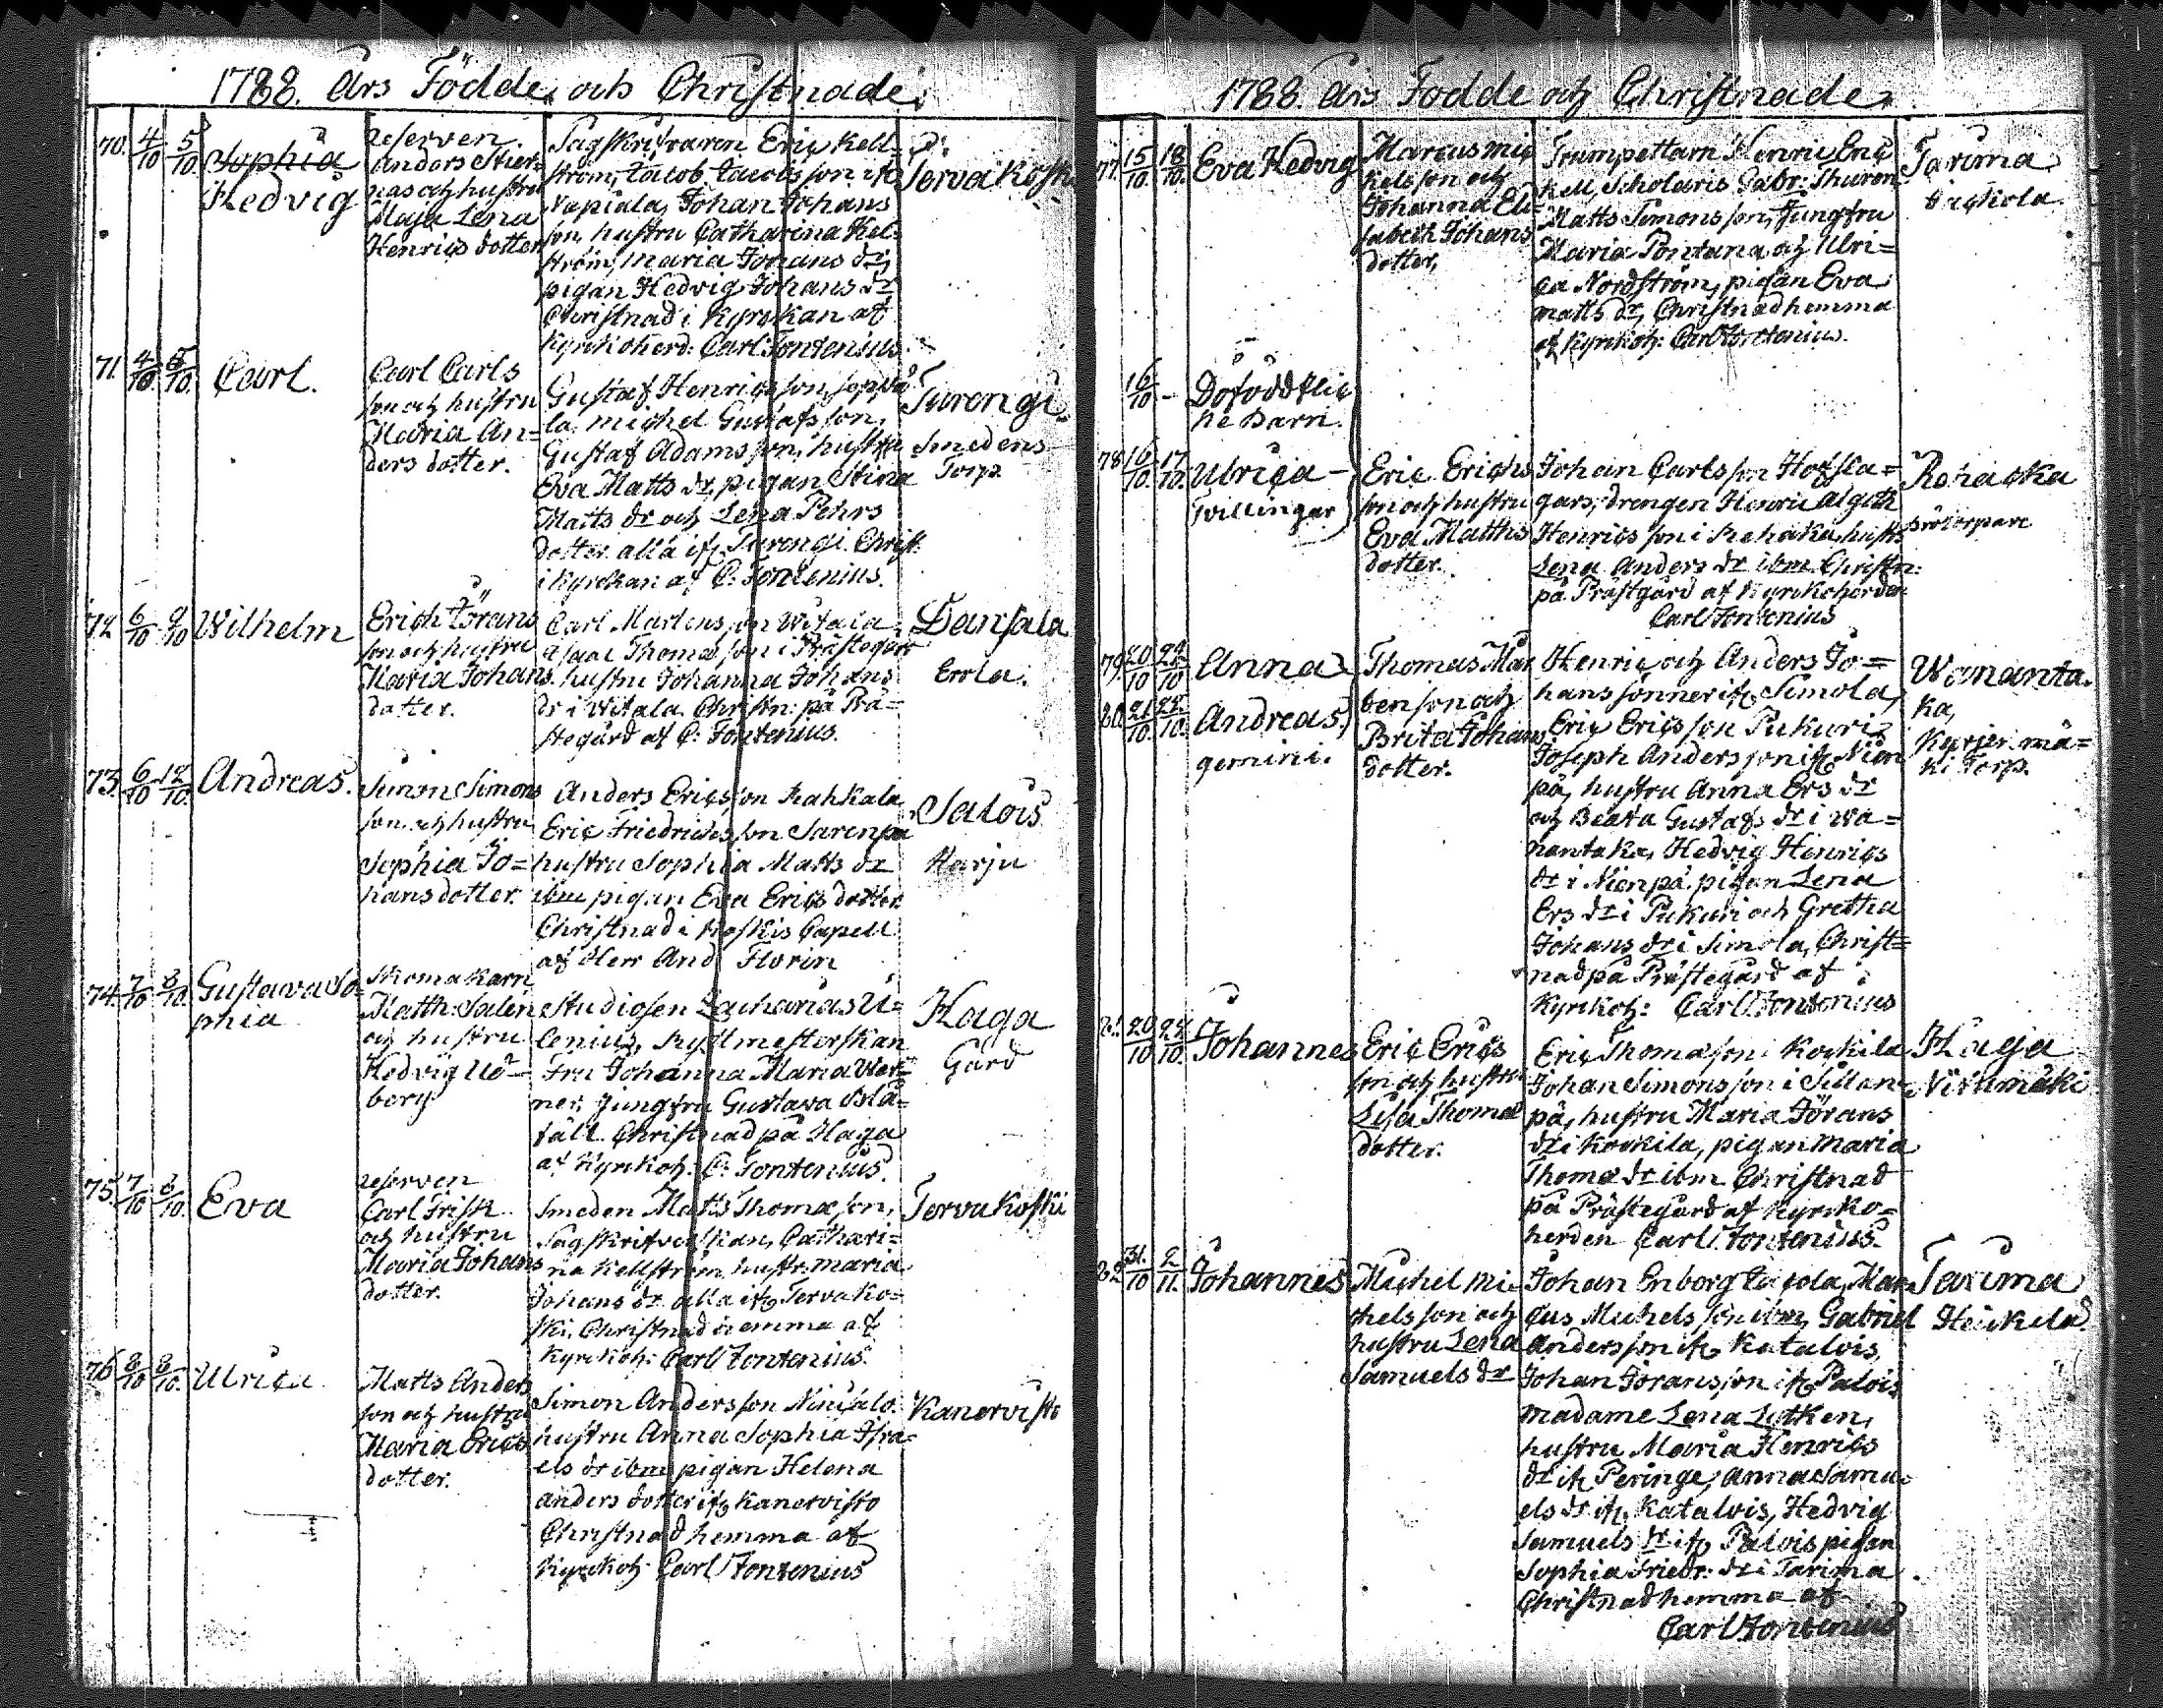 1788. Års Födde och Christnade.
70. 4/10 5/10. Sophia Hedvig
reserven
Anders Stier=
nas och hustru
Maja Lena
Henrics dotter
Sagskrifvaren Eric Kell=
ström, Jacob Jacobs son ifr.
Napiala, Johan Johans
son, hustru Catharina Kel=
ström, Maria Johans dr,
pigan Hedvig Johans dr
Christnad i Kyrckan af
Kyrckoherd: Carl Fontenius.
Tervakoski
71. 4/10. 5/10. Carl.
Carl Carls
son och hustru
Maria An=
ders dotter.
Gustaf Henrics son
la, Michel Gustafs son,
Gustaf Adams son, hustru
Eva Matts dr, pigan Stina
Matts dr och Lena Pehrs
dotter alla ifr. Turengi. Christ.
i Kyrckan af C: Fontenius.
Turengi
Smedens
Torp.
72. 6/10 9/10 Wilhelm
Erich Jörans
son och hustru
Maria Johans
dotter.
Carl Martens son Witala
Isaac Thomæ son i Prästegård
hustru Johanna Johans
dr i Witala. Christn: på Prä=
stegård af C: Fontenius.
Dansala
Erola.
73. 6/10 12/10. Andreas.
Simon Simons
son och hustru
Sophia Jo=
hans dotter.
Anders Erics son Kahkala
Eric Friedrichs son Sarenpä
hustru Sophia Matts dr
ibm pigan Eva Erics dotter
Christnad i Koskis Capell
af Herr And: Florin
Salois
Harju
74. 7/10 8/10. Gustava So=
phia
Skomakarn
Matth: Salen
och hustru
Hedvig No=
berg
Studiosen Zacharias U=
lenius, Ryttmesterskan
Fru Johanna Maria Wer=
ner, Jungfru Gustava Blå=
fält. Christnad på Haga
af Kyrckoh: C: Fontenius.
Haga
Gård
75. 7/10 8/10. Eva
reserven
Carl Frisk
och hustru
Maria Johans
dotter.
Smeden Matts Thomæ son,
Sagskrifverskan, Cathari=
na Kellström, hustr. Maria
Johans dr. alla ifr. Tervako=
ski. Christnad hemma af
Kyrckoh: Carl Fontenius.
Tervakoski
76 8/10 8/10. Ulrica
Matts Anders
son och hustru
Maria Erics
dotter.
Simon Anders son Ninisalo.
hustru Anna Sophia Isra=
els dr ibm pigan Helena
Anders dotter ifr Kanervisto
Christnad hemma af
Kyrckoh: Carl Fontenius
Kanervisto
1788 års Födde och Christnade.
77. 15/10. 18/10. Eva Hedvig
Marcus Mic
kels son och
Johanna Eli=
sabeth Johans
dotter,
Trumpettarn Henric Enc
kell, Scholaris Gabr: Thuren
Matts Simons son, Jungfru
Maria Fontena och Ulri=
ca Nordström, pigan Eva
Matts dr, Christnad hemma
af Kyrckoh: Carl Fontenius.
Tarima
16/10 - Döfödd flic
ke Barn.
78 16/10. 17/10. Ulrica -
Tvillingar
Eric Erichs
son och hustru
Eva Matths
dotter.
Johan Carls son
gars, drengen Henric Algoth
Henrics son i Rehaka, hustr.
Lena Anders dr ibm. Christn:
på Prästgård af Kyrckoherden
Carl Fontenius
Rehacka
79. 20/10 22/10 Anna
80. 21/10. 22/10. Andreas.
gemini.
Thomas Mar
ten son och
Brita Johans
dotter.
Henric och Anders Jo=
hans sönner ifr Simola,
Eric Erics son Pukuri
Joseph Anders son ifr Nien
pä, hustru Anna Ers dr
och Beata Gustafs dr i Wa=
nantaka, Hedvig Henrics
dr i Nienpä. pigan Lena
Ers dr i Pukuri och Gretha
Johans dr i Simola, Christ=
nad på Prästegård af
Kyrkoh: Carl Fontenius
Wananta.
ka,
mä=
ki Torp.
81. 20/10 22/10. Johannes
Eric Erics
son och hustru
Lisa Thomæ
dotter.
Eric Thomæ son i Kockila
Johan Simons son i Sillan
pä, hustru Maria Jörans
dr i Kockila, pigan Maria
Thomæ dr ibm Christnad
på Prästegård af Kyrcko=
herden Carl Fontenius.
Haga
Nirimäki
82 31./10 2/11. Johannes
Michel Mic
hels son och
hustru Lena
Samuels dr
Johan Enborg Mar
cus Michels son ibm, Gabriel
Anders son ifr Katalois,
Johan Jörans son ifr Palois
Madame Lena Lytken,
hustru Maria Henrics
dr ifr Peringe, Anna Samu=
els dr ifr. Katalois, Hedvig
Samuels dr ifr Palois pigan
Sophia Friedr: dr i Tarima
Christnad hemma af
Carl Fontenius
Tarima
Heickilä